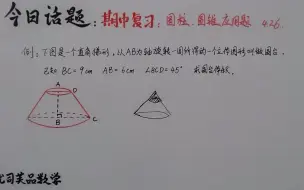 今日话题：期中复习：圆柱、圆锥应用题 4.26.
例：下图是一个直角梯形，以AB为轴旋转一周所得的一个立体图形叫做圆台。
已知 BC=9cm AB=6cm ∠BCD=45° 求圆台体积。
A
D
B
C
英品数学